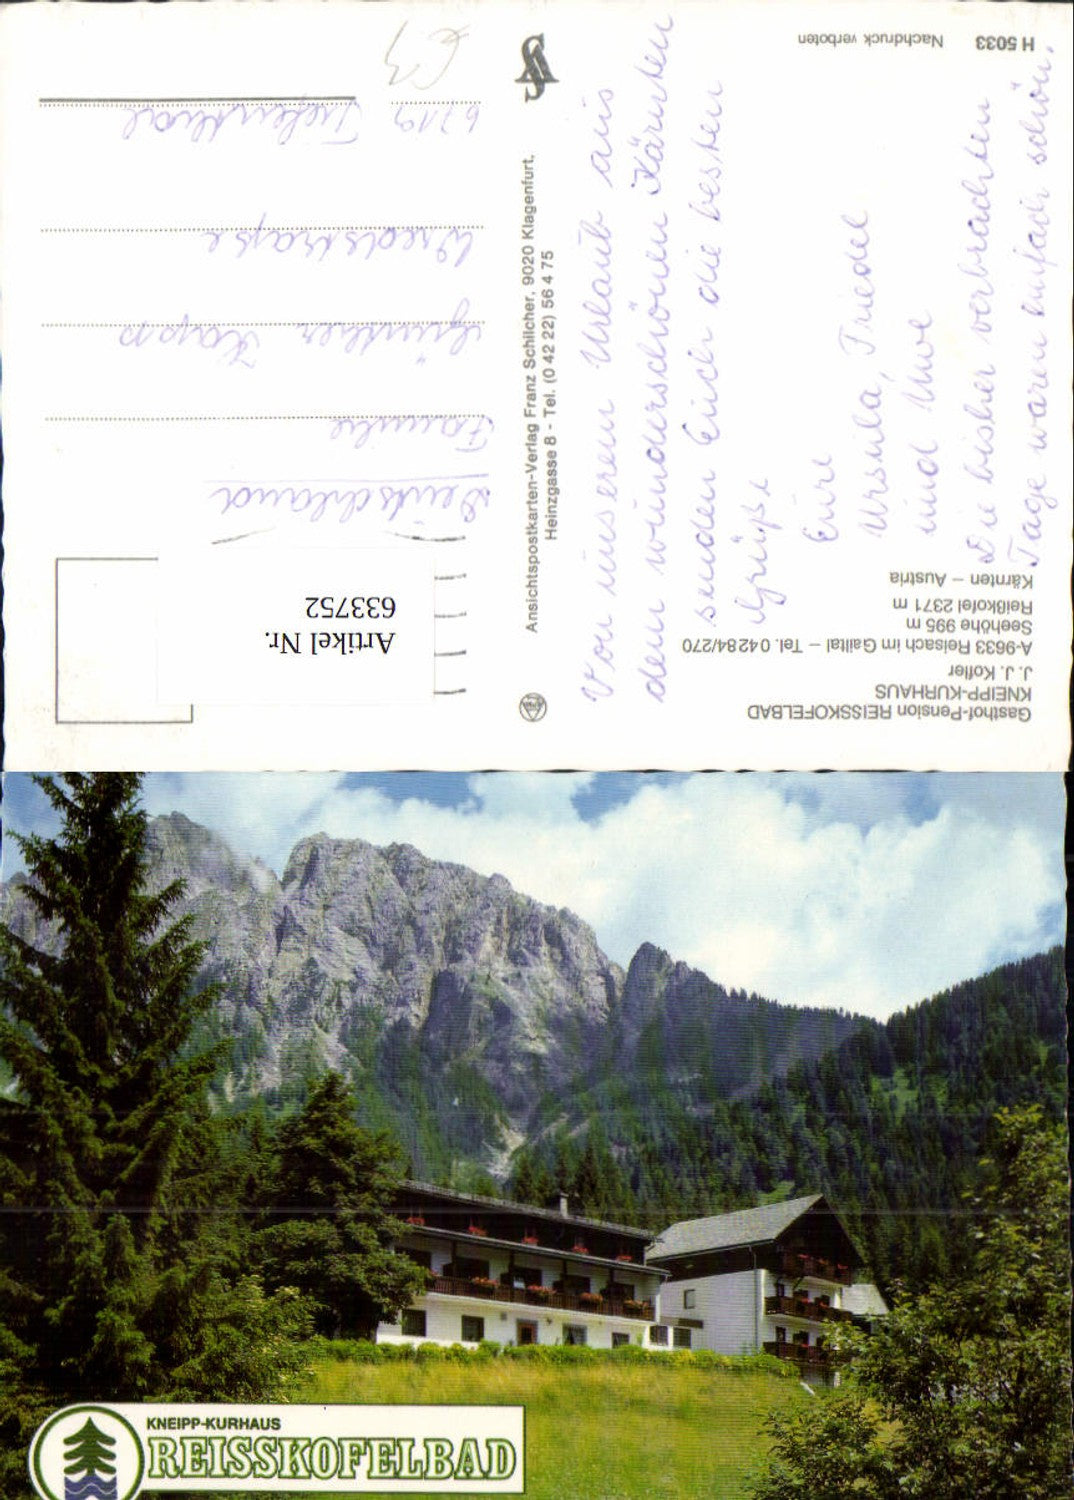 Gasthof-Pension REISSKOFELBAD
KNEIPP-KURHAUS
J. J. Kofler
A-9633 Reisach im Gailtal – Tel. 0 42 84/270
Seehöhe 995 m
Reißkofel 2371 m
Kärnten – Austria
Von unserem Urlaub aus
dem wunderschönen Kärnten
senden Euch die besten
Grüße
Eure
Ursula, Friedel
und Uwe
Die bisher verbrachten
Tage waren einfach schön.
H 5033 Nachdruck verboten
Ansichtspostkarten-Verlag Franz Schilcher, 9020 Klagenfurt,
Heinzgasse 8 - Tel. (0 42 22) 56 4 75
Artikel Nr.
633752
Deutschland
Familie
Günther
6719 Tiefenthal
KNEIPP-KURHAUS
REISSKOFELBAD